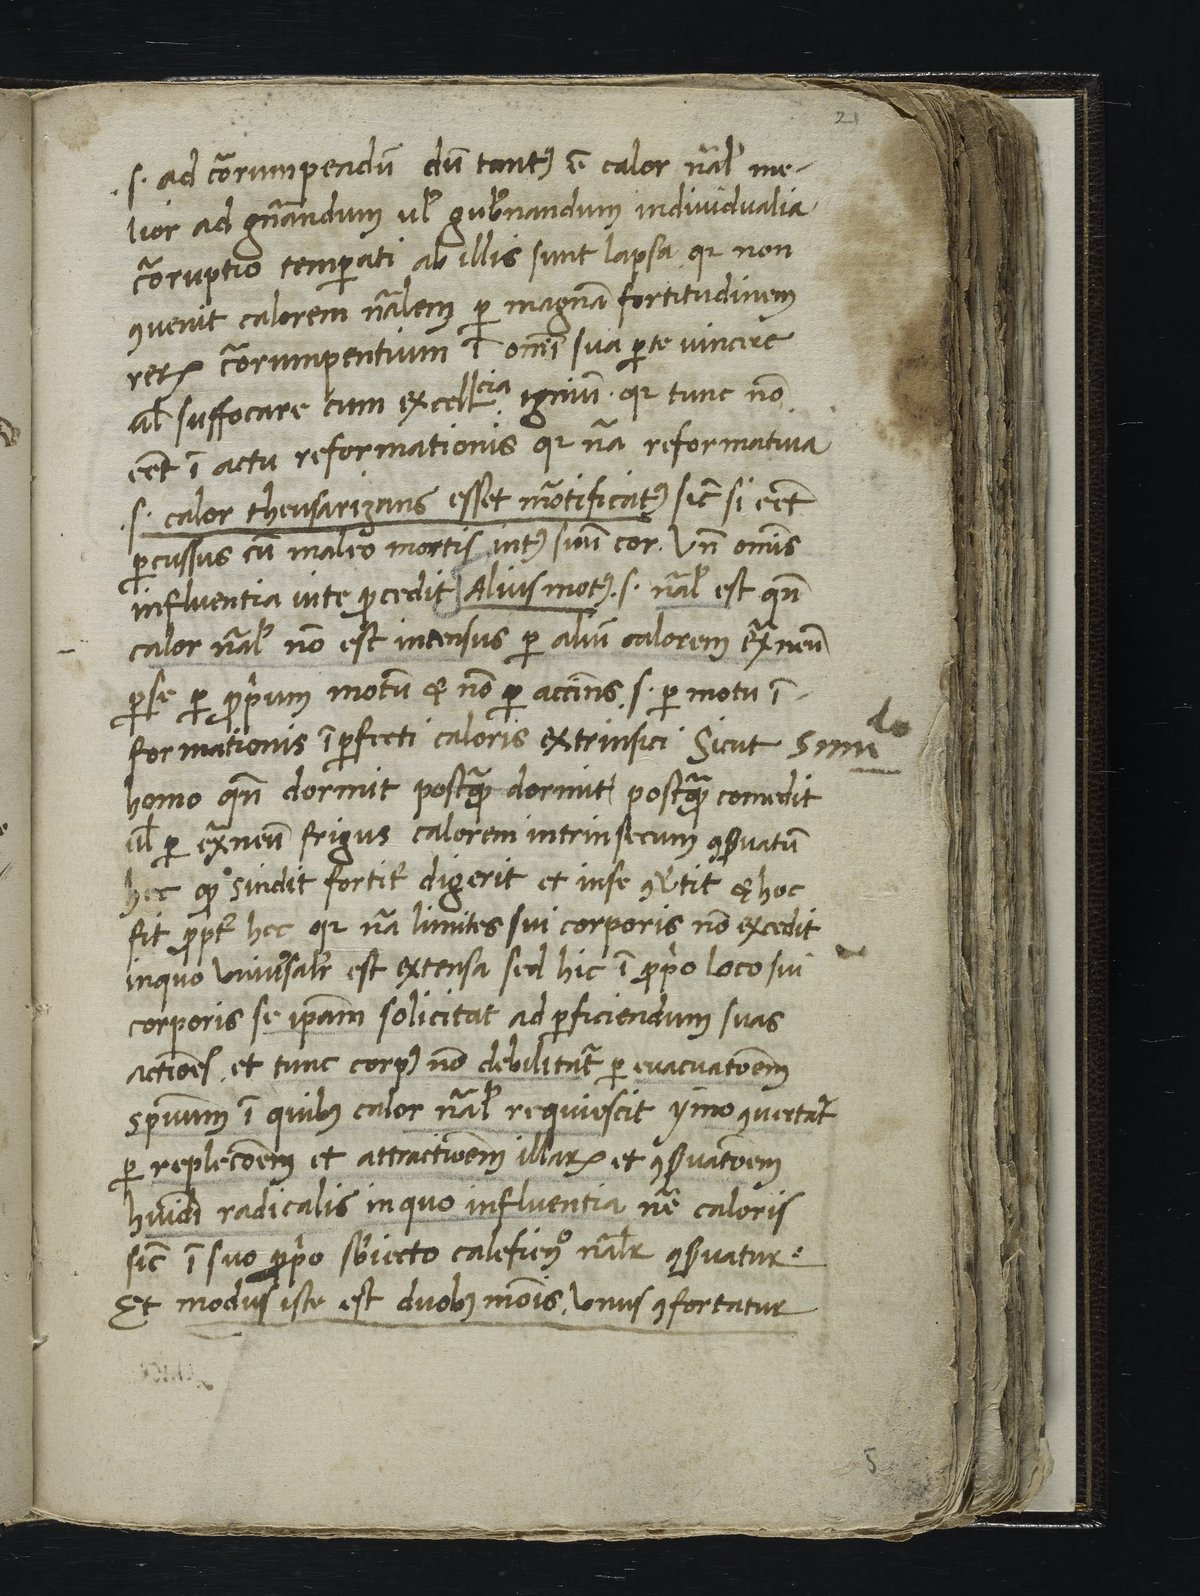 21
.s. ad cōrumpendū dū tantꝰ ē calor nāl' me-
lior ad gn̄andum ul' gub'nandum individualia
cōruptio temꝑati ab illis sunt lapsa qr non
ꝯvenit calorem nālem ꝑ magnā fortitudinem
reꝝ cōrumpentium ī om̄i sua ꝑte vincere
al' suffocare cum excell'cia igniū. qr tunc nō
eēt ī actu reformationis qr nā reformativa
.s. calor thensarizans esset mōtificatꝰ sic̄ si eēt
ꝑcussus cū maleo mortis intꝰ suū cor. Vn̄ om̄is
influentia vite ꝓcedit Alius motꝰ .s. nāl' est qn̄
calor nāl' nō est intensus ꝑ aliū calorem ex̄neū
ꝑse ꝑ ꝓpium motū & nō ꝑ accin̄s .s. ꝑ motū ī-
formationis īꝑfecti caloris extrinsici Sicut
homo qn̄ dormit postq̄ dormit postq̄ comedit
ul' ꝑ ex̄neū frigus calorem intrinsecum ꝯẜvatū
hec qͦ sindit fortit' digerit et inse ꝯv'tit & hoc
fit ꝓpt' hec qr nā limites sui corporis nō excedit
inquo univ'salr est extensa sed hic ī ꝓpo loco sui
corporis se ipam̄ solicitat ad ꝑficiendum suas
actiōes. et tunc corpꝰ nō debilitat' ꝑ evacuatōem
sp̄uum ī quibꝰ calor nāl' requiescit ymo ꝯvertat'
ꝑ replecōem et attractiōem illaꝝ et ꝯẜvatōem
hūidi radicalis inquo influentia nē caloris
sic̄ ī suo ꝓpo sb'iecto calefienͦ nālr ꝯẜvatur:
Et modus iste est duobꝰ mōis. Unus ꝯfortatur
5